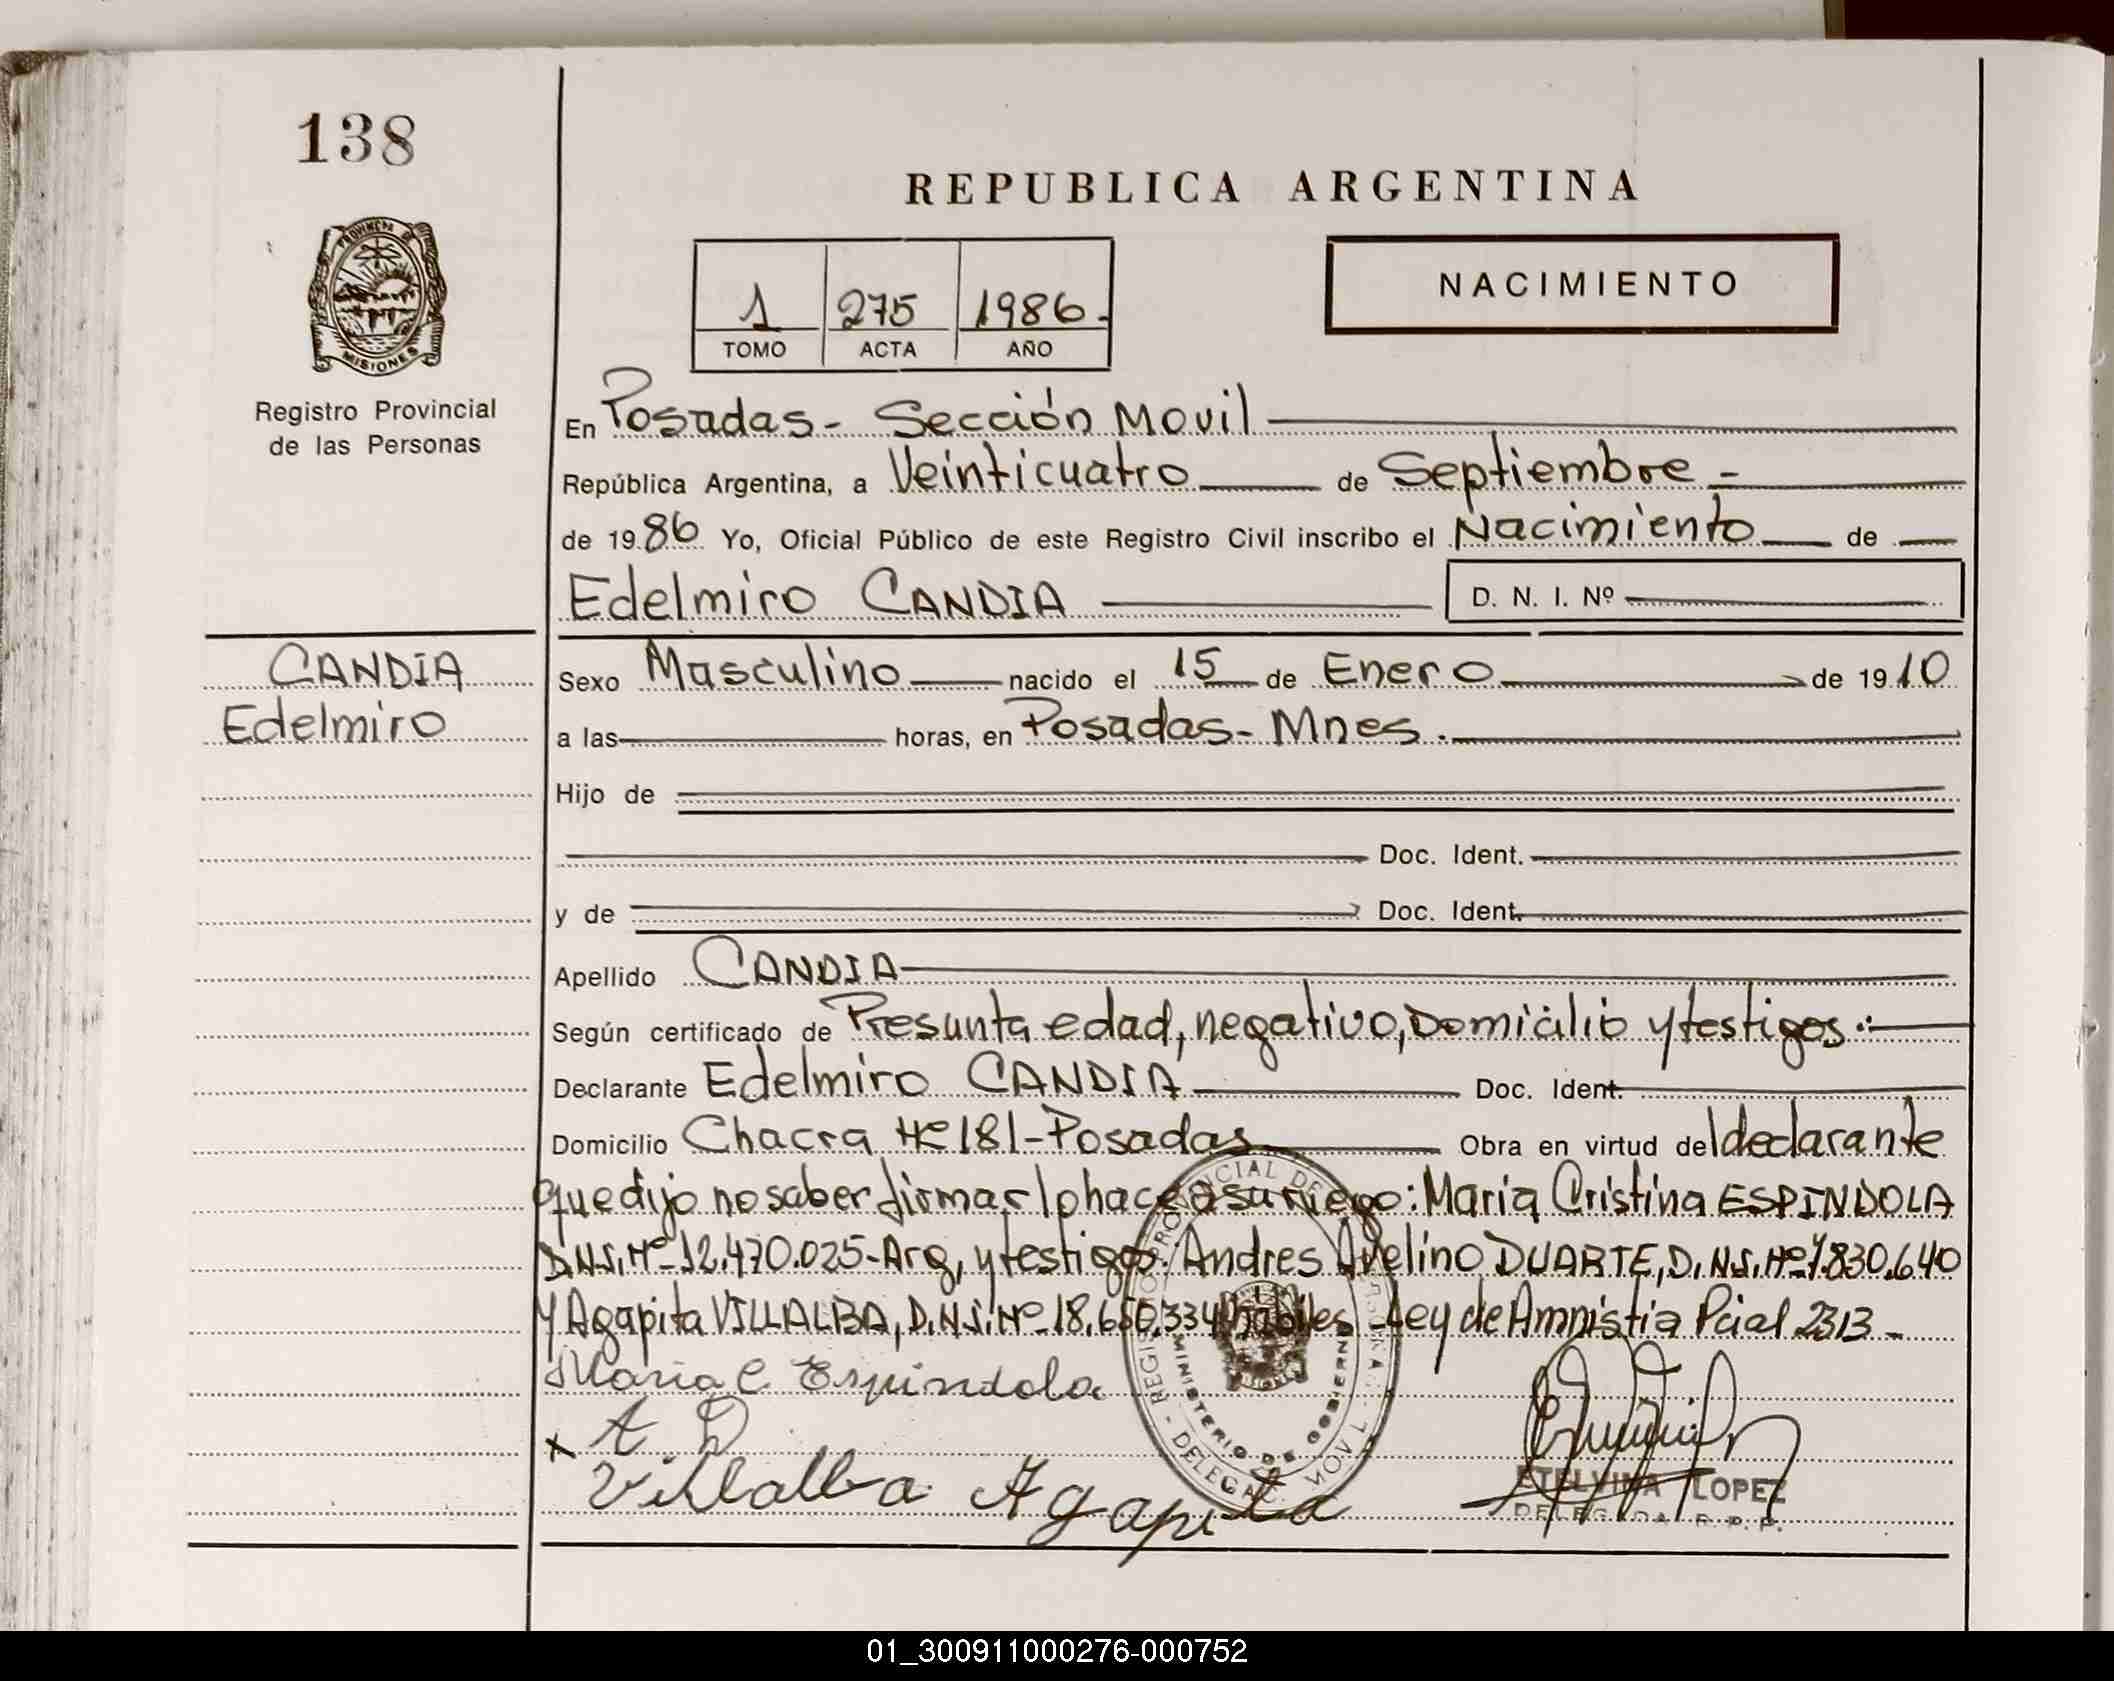 138
REPUBLICA ARGENTINA
PROVINCIA DE MISIONES
Registro Provincial
de las Personas
1 275 1986.
TOMO ACTA AÑO
NACIMIENTO
En Posadas - Sección Movil
República Argentina, a Veinticuatro de Septiembre -
de 1986 Yo, Oficial Público de este Registro Civil inscribo el Nacimiento de
Edelmiro CANDIA D. N. I. Nº
CANDIA
Edelmiro
Sexo Masculino nacido el 15 de Enero de 1910
a las horas, en Posadas - Mnes.
Hijo de
Doc. Ident.
y de Doc. Ident.
Apellido CANDIA
Según certificado de Presunta edad, negativo, Domicilio y testigos.-
Declarante Edelmiro CANDIA Doc. Ident.
Domicilio Chacra Nº 181 - Posadas Obra en virtud del declarante
que dijo no saber firmar lo hace a su ruego: Maria Cristina ESPINDOLA
D.N.I. Nº 12.470.025 - Arg, y testigos: Andres Avelino DUARTE, D.N.I. Nº 7.830.640
Y Agapita VILLALBA, D.N.I. Nº 18.650.334 habiles - Ley de Amnistia Pcial 2313 -
Maria C Espindola
x A. D
Villalba Agapita
MINISTERIO DE GOBIERNO
ETELVINA LOPEZ
DELEGADA R. P. P.
01_300911000276-000752